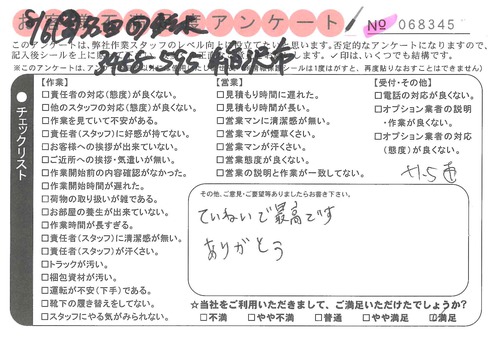 アンケート
№ 068345
このアンケートは、弊社作業スタッフのレベル向上に役立てたいと思います。否定的なアンケートになりますので、
チェックリスト
【作業】
□責任者の対応(態度)が良くない。
□他のスタッフの対応(態度)が良くない。
□作業を見ていて不安がある。
□責任者(スタッフ)に好感が持てない。
□お客様への挨拶が出来ていない。
□ご近所への挨拶・気遣いが無い。
□作業開始前の内容確認がなかった。
□作業開始時間が遅れた。
□荷物の取り扱いが雑である。
□お部屋の養生が出来ていない。
□作業時間が長すぎる。
□責任者(スタッフ)に清潔感が無い。
□責任者(スタッフ)が汗くさい。
□トラックが汚い。
□梱包資材が汚い。
□運転が不安(下手)である。
□靴下の履き替えをしてない。
□スタッフにやる気がみられない。
【営業】
□見積もり時間に遅れた。
□見積もり時間が長い。
□営業マンに清潔感が無い。
□営業マンが煙草くさい。
□営業マンが汗くさい。
□営業態度が良くない。
□営業の説明と作業が一致してない。
【受付・その他】
□電話の対応が良くない。
□オプション業者の説明
・作業が良くない。
□オプション業者の対応
(態度)が良くない。
その他、ご意見・ご要望等ありましたらお書き下さい。
ていねいで最高です
ありがとう
☆当社をご利用いただきまして、ご満足いただけたでしょうか?
□不満 □やや不満 □普通 □やや満足 ☑満足